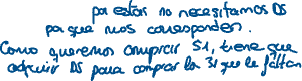 por estos no necesitamos DS
porque nos corresponden.
Como queremos comprar S1, tiene que
adquirir DS para comprar los 31 que le faltan